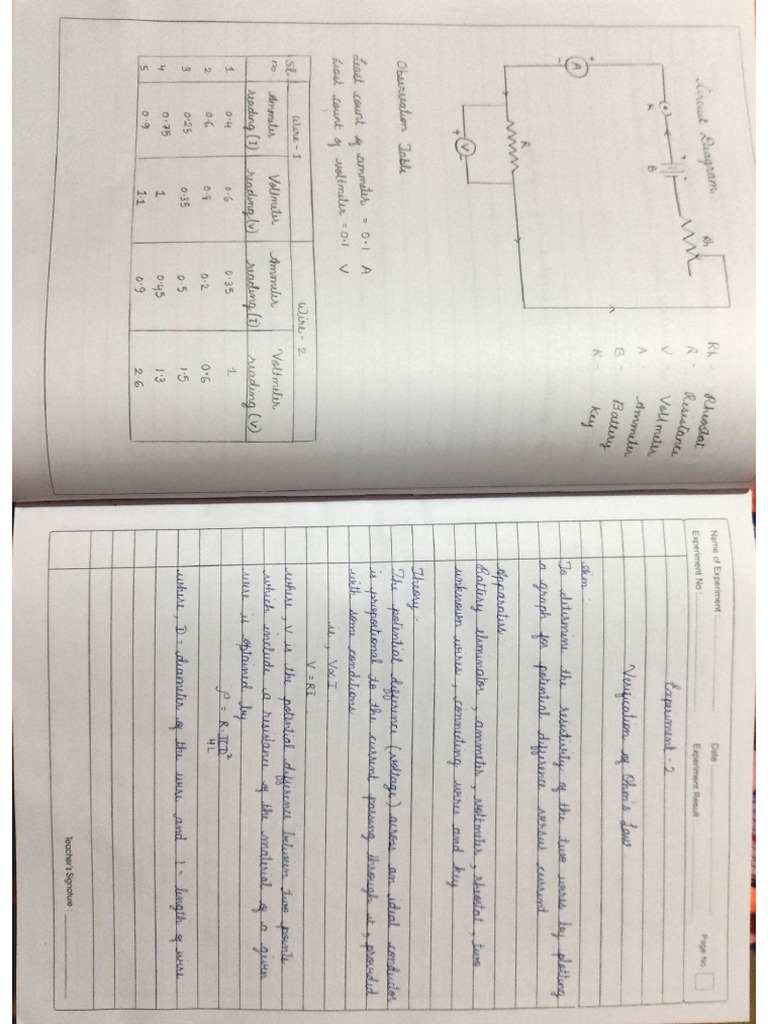 Circuit Diagram
Rh
K
B
A
R
V
Rh - Rheostat
R - Resistance
V - Voltmeter
A - Ammeter
B - Battery
K - Key
Observation Table
Least count of ammeter = 0.1 A
Least count of voltmeter = 0.1 V
Wire - 1 Wire - 2
Sl. no Ammeter reading (I) Voltmeter reading (V) Ammeter reading (I) Voltmeter reading (V)
1 0.4 0.6 0.35 1
2 0.6 0.8 0.2 0.6
3 0.25 0.35 0.5 1.5
4 0.75 1 0.45 1.3
5 0.9 1.1 0.9 2.6
Name of Experiment : Date :
Experiment No : Experiment Result Page No.
Experiment - 2
Verification of Ohm's Law
Aim :
To determine the resistivity of the two wires by plotting
a graph for potential difference versus current
Apparatus:
Battery eliminator, ammeter, voltmeter, rheostat, two
unknown wires, connecting wires and key
Theory:-
The potential difference (voltage) across an ideal conductor
is proportional to the current passing through it, provided
with some conditions
ie, V∝I
V = RI
where, V is the potential difference between two points
which include a resistance of the material of a given
wire is obtained by
ρ = R πD²/4L
where, D = diameter of the wire and l = length of wire
Teacher's Signature :